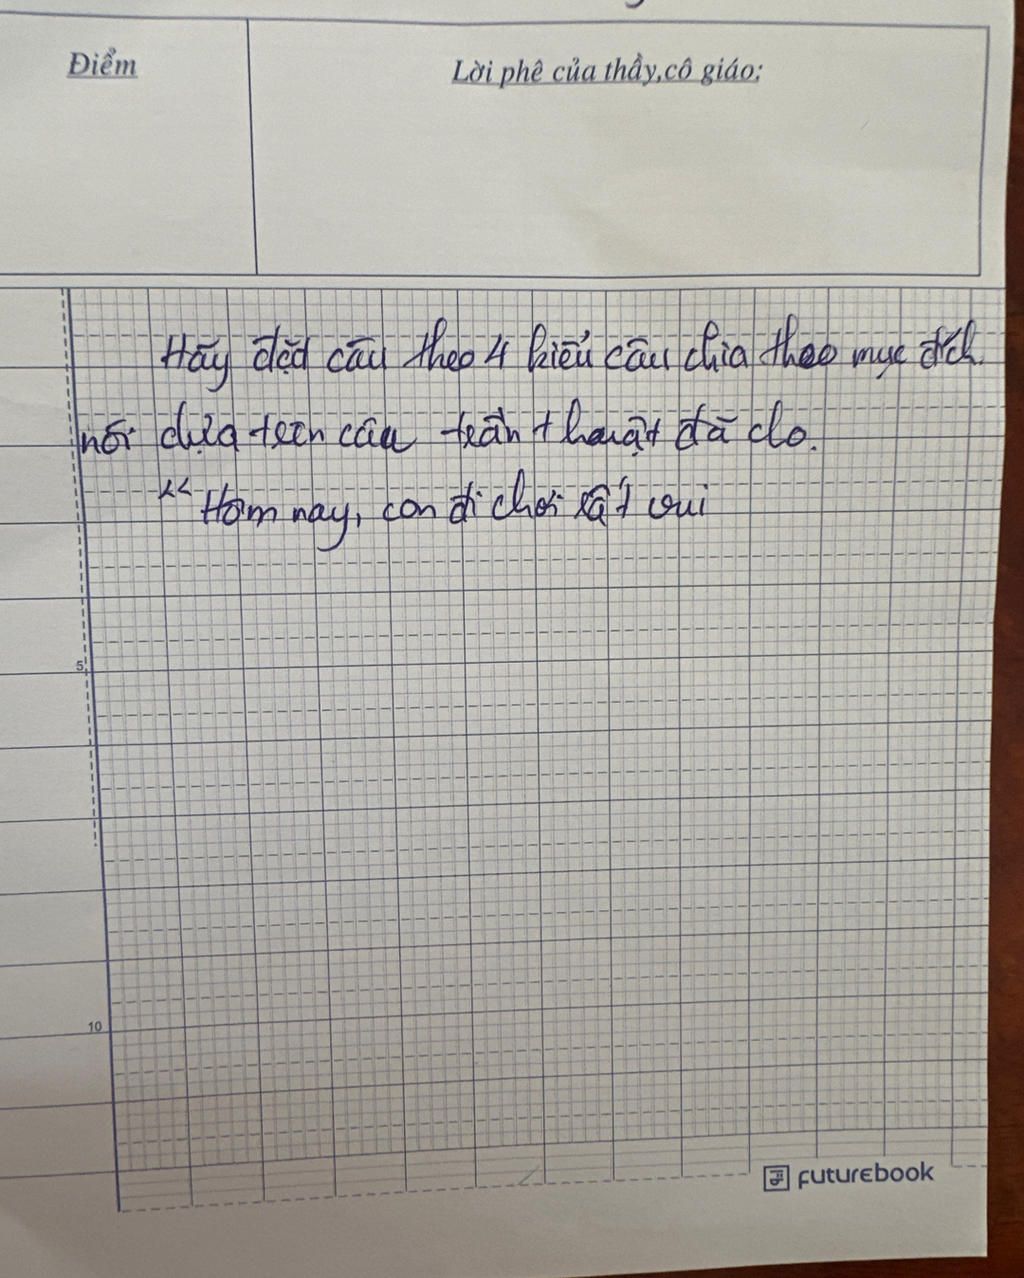 Điểm
Lời phê của thầy,cô giáo:
Hãy đặt câu theo 4 kiểu câu chia theo mục đích
nói dựa trên câu trần thuật đã cho.
"Hôm nay, con đi chơi rất vui
5
10
futurebook